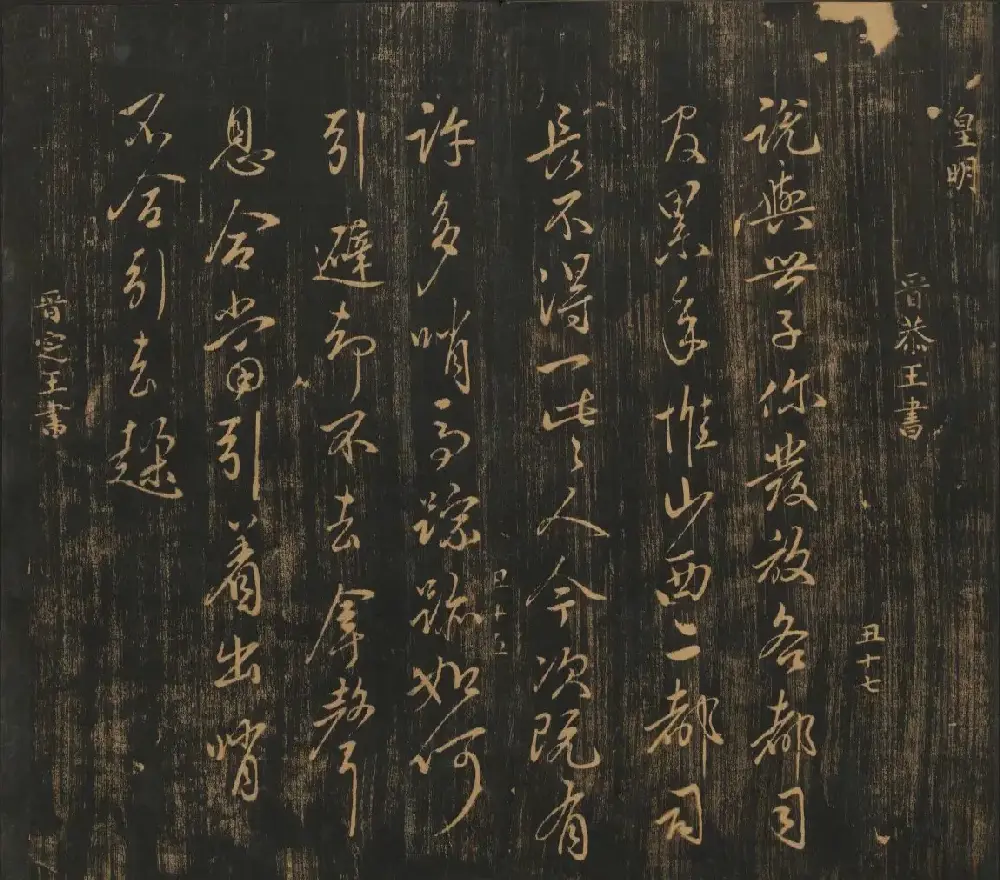 皇明
晉恭王書
丑十七
說與世子你發放各都司
官累年惟山西二都司
長不得一些人今次既有
丑十五
許多哨馬蹤跡如何
引避却不去拿
息合當引着出哨
不合引去
晉定王書